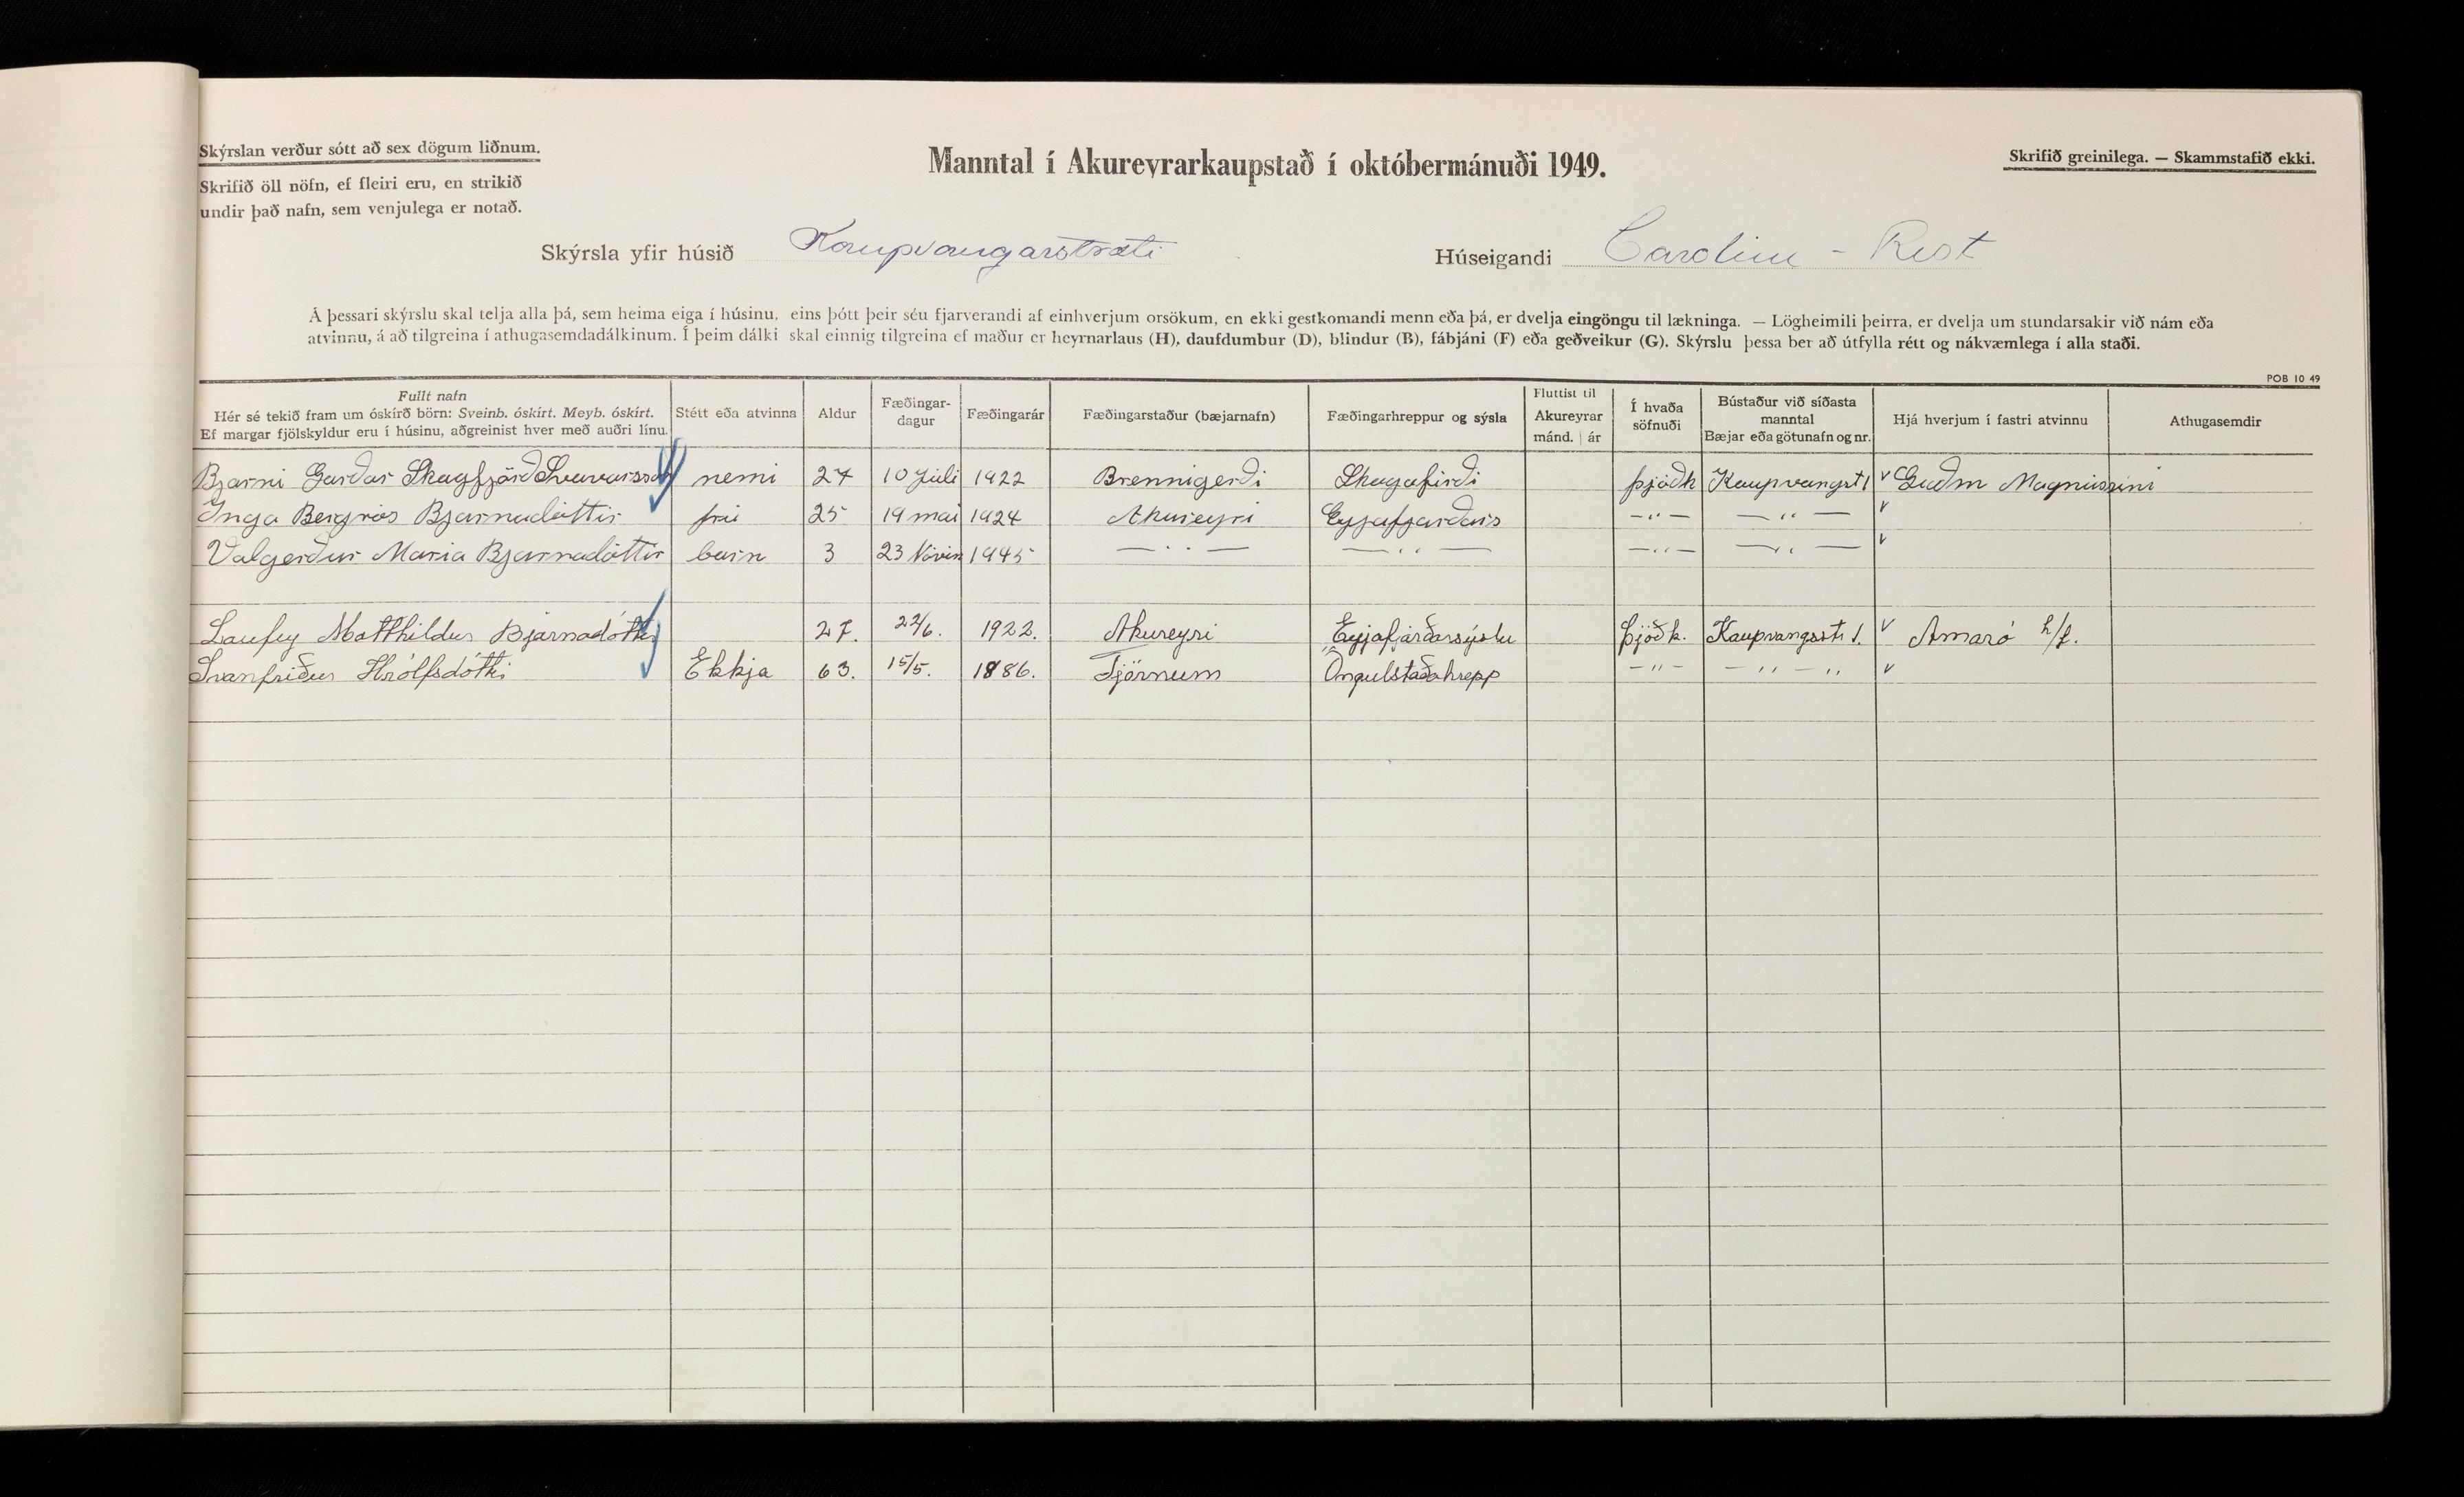 Skýrslan verður sótt að sex dögum liðnum.
Skrifið öll nöfn, ef fleiri eru, en strikið
undir það nafn, sem venjulega er notað.
Manntal í Akureyrarkaupstað í októbermánuði 1949.
Skrifið greinilega. — Skammstafið ekki.
Skýrsla yfir húsið Kaupvangarstræti
Húseigandi Caroline - Rest
Á þessari skýrslu skal telja alla þá, sem heima eiga í húsinu, eins þótt þeir séu fjarverandi af einhverjum orsökum, en ekki gestkomandi menn eða þá, er dvelja eingöngu til lækninga. — Lögheimili þeirra, er dvelja um stundarsakir við nám eða
atvinnu, á að tilgreina í athugasemdadálkinum. Í þeim dálki skal einnig tilgreina ef maður er heyrnarlaus (H), daufdumbur (D), blindur (B), fábjáni (F) eða geðveikur (G). Skýrslu þessa ber að útfylla rétt og nákvæmlega í alla staði.
POB 10 49
Fullt nafn
Hér sé tekið fram um óskírð börn: Sveinb. óskírt. Meyb. óskírt.
Ef margar fjölskyldur eru í húsinu, aðgreinist hver með auðri línu.
Stétt eða atvinna
Aldur
Fæðingar-
dagur
Fæðingarár
Fæðingarstaður (bæjarnafn)
Fæðingarhreppur og sýsla
Fluttist til
Akureyrar
mánd. | ár
Í hvaða
söfnuði
Bústaður við síðasta
manntal
Bæjar eða götunafn og nr.
Hjá hverjum í fastri atvinnu
Athugasemdir
Bjarni Garðar Skagfjörð Svavarsson nemi 27 10 Júli 1922 Brennigerði Skagafirði þjóðk Kaupvangst 1 v Guðm Magnússini
Inga Bergrós Bjarnadóttir frú 25 19 mai 1924 Akureyri Eyjafjarðars -"- -"- v
Valgerður Maria Bjarnadóttir barn 3 23 Nóvem 1945 -"- -"- -"- -"- v
Laufey Matthildur Bjarnadóttir 27. 22/6. 1922. Akureyri Eyjafjarðarsýslu þjóðk. Kaupvangsstr 1. v Amaró h/f.
Svanfríður Hrólfsdóttir Ekkja 63. 15/5. 1886. Tjörnum Öngulstaðahrepp -"- -"- " v